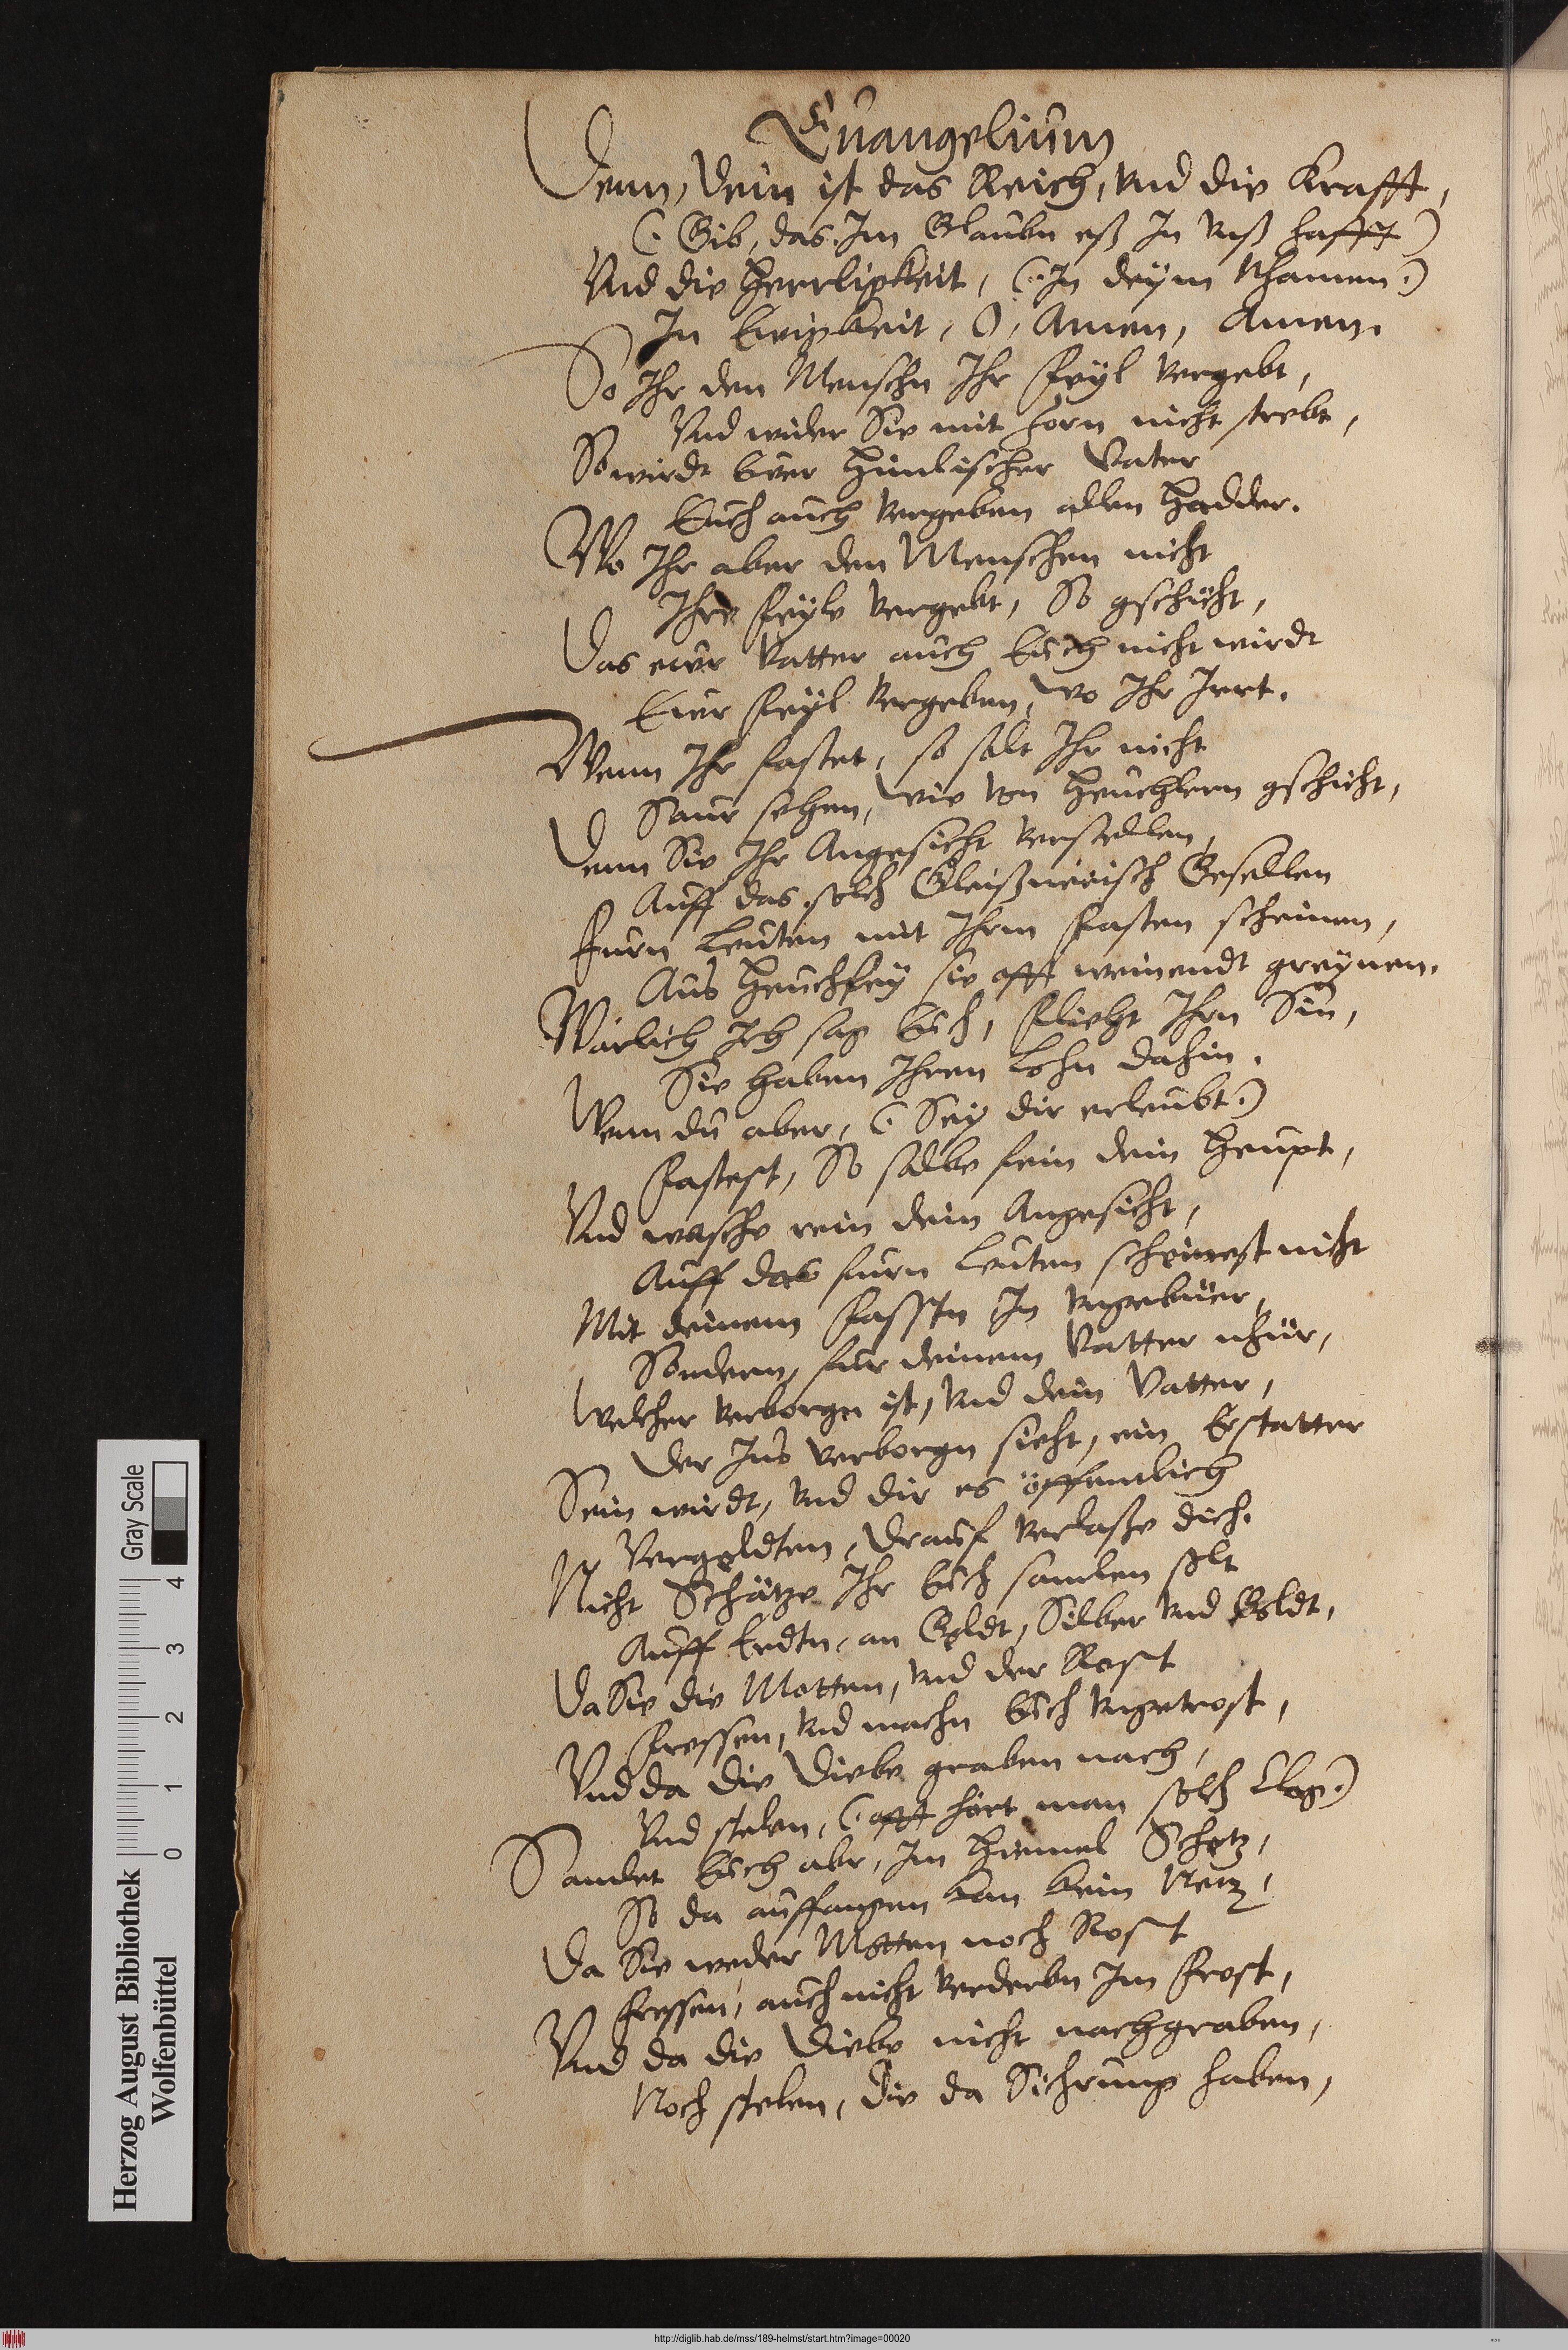 Euangelium
Denn, dein ist das Reich, vnd die Krafft,
(: Gib, das Im Glaubn eß In vnß hafft)
Vnd die Herrligkeit, (: In deÿm Nhamen:)
In Ewigkeit, O, Amen, Amen.
So Ihr den Menschn Ihr feÿl vergebt,
Vnd wider Sie mit Zorn nicht strebt,
So wirdt Eüer Himlischer Vater
Euch auch vergeben allen Hadder.
Wo Ihr aber den Menschen nicht
Ihre feÿle vergebt, So gschicht,
Das ewr Vatter auch Euch nicht wirdt
Ewr feÿl vergeben, wo Ihr Irrt.
Wenn Ihr fastet, so solt Ihr nicht
Saur sehen, wie von Heuchlern gschicht,
Denn Sie Ihr Angesicht verstellen,
Auff das solch Gleißnerisch Gesellen
Furn Leuten mit Ihrm fasten scheinen,
Aus Heuchleÿ sie offt weinendt greÿnen.
Warlich Ich sag Euch, flieht Ihrn Sin,
Sie haben Ihren Lohn dahin.
Wenn du aber, (: Seÿ dir erleubt:)
fastest, So salbe fein dein Heupt,
Vnd wasche rein dein Angesicht,
Auff das furn Leuten scheinest nicht
Mit deinem fasstn In vngebüer,
Sondern, fur deinem Vatter nhür,
Welcher verborgn ist, vnd dein Vatter,
Der Ins verborgn sieht, ein Erstatter
Sein wirdt, vnd dir es öffentlich
Vergeldten, drauf verlaße dich.
Nicht Schätze Ihr Euch samlen solt
Auff Erdtn, an Geldt, Silber vnd Goldt,
Da Sie die Motten, vnd der Rost
fressen, vnd machn Euch vngetrost,
Vnd da die Diebe graben nach,
Vnd stelen, (: offt hört man solch Clag:)
Samlet Euch abr, Im Himmel Schetz,
So da auffangen kan kein Netz,
Da Sie weder Motten noch Rost
fressen, auch nicht verderbn Im frost,
Vnd da die Diebe nicht nachgraben,
Noch stelen, die da Sichrung haben,
Herzog August Bibliothek
Wolfenbüttel
0 1 2 3 4
Gray Scale
http://diglib.hab.de/mss/189-helmst/start.htm?image=00020